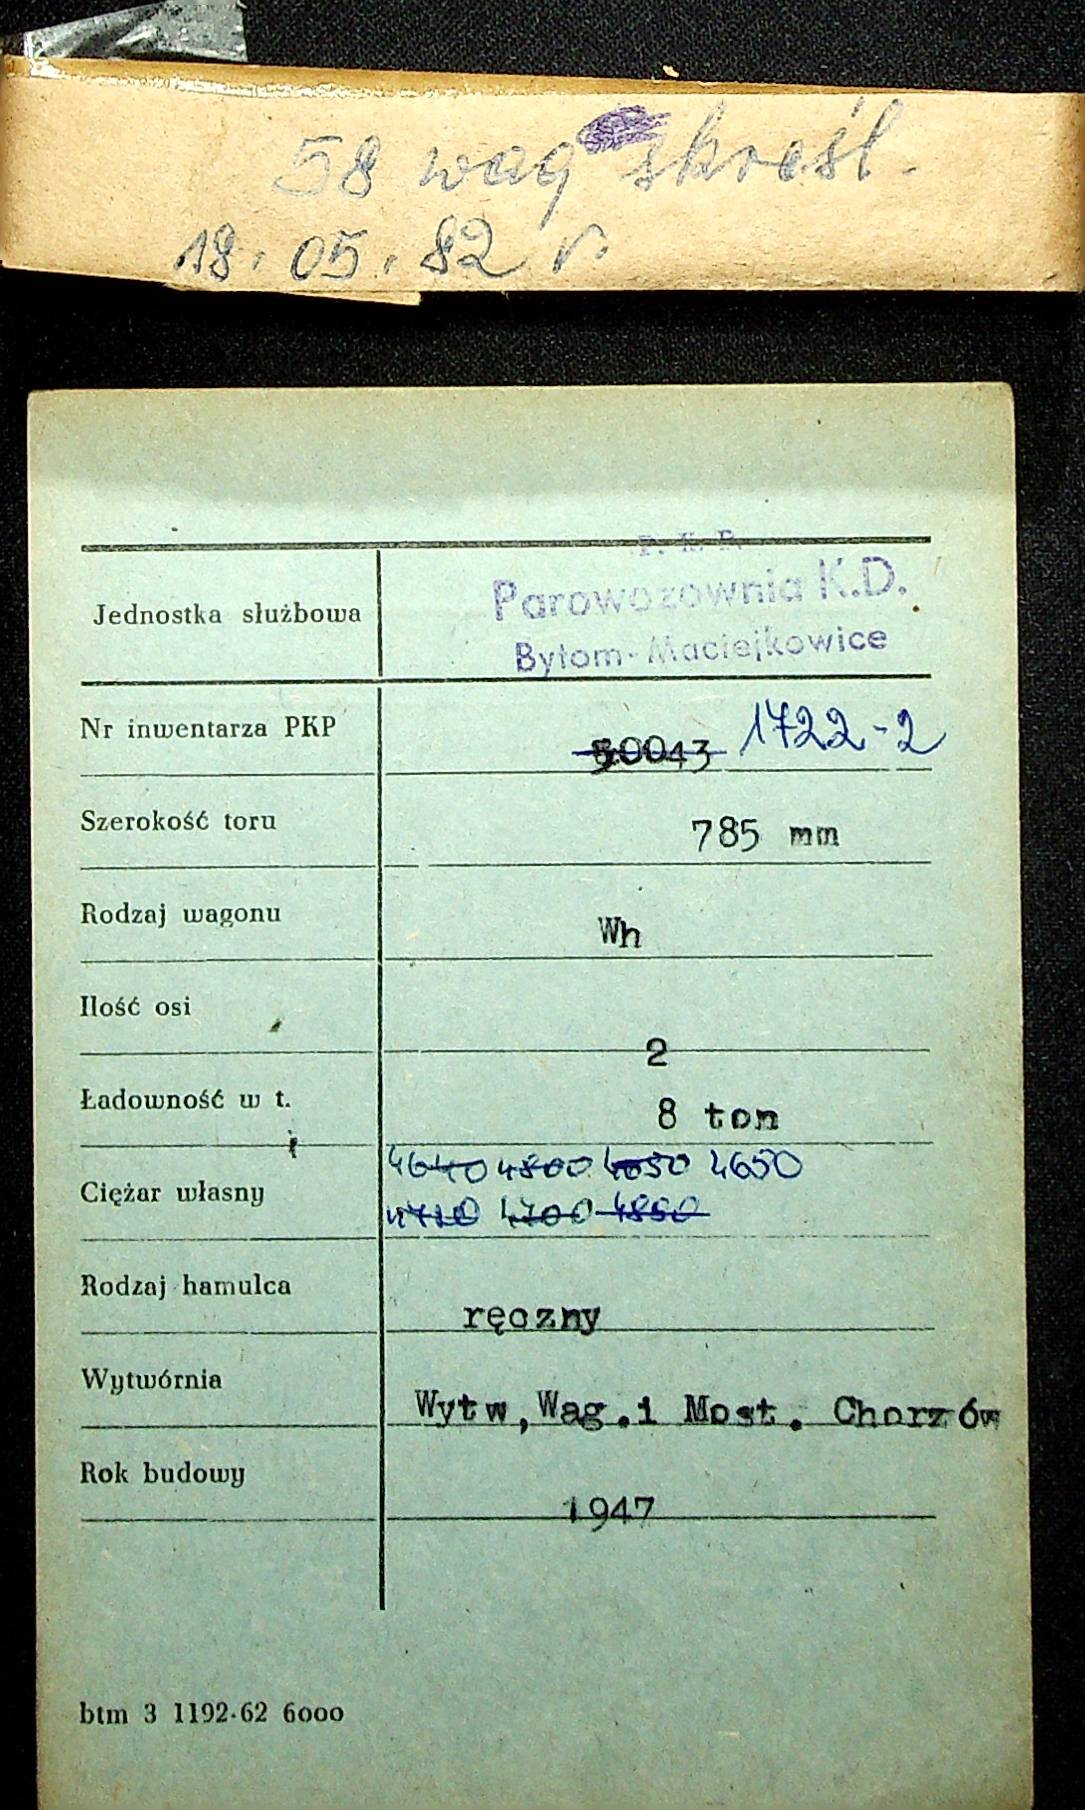 58 wag skreśl.
18.05.82 r.
P. K. P.
Parowozownia K.D.
Bytom-Maciejkowice
Jednostka służbowa
Nr inwentarza PKP 50043 1722-2
Szerokość toru 785 mm
Rodzaj wagonu Wh
Ilość osi 2
Ładowność w t. 8 ton
4640 4800 4650 4650
Ciężar własny
4700 4850
Rodzaj hamulca ręczny
Wytwórnia Wytw,Wag.i Most. Chorzów
Rok budowy 1947
btm 3 1192-62 6000